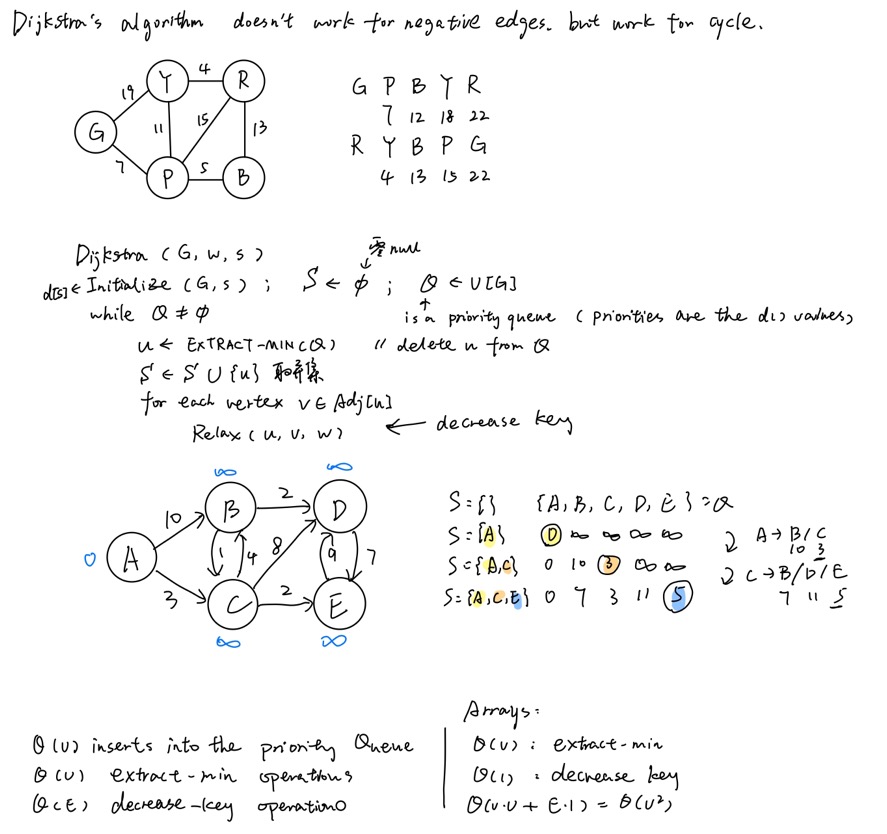 Dijkstra's algorithm doesn't work for negative edges. but work for cycle.
G Y R P B
19 4 11 15 13 7 5
G P B Y R
7 12 18 22
R Y B P G
4 13 15 22
Dijkstra (G, w, s)
零 null
d[s] ← Initialize (G, s) ; S ← ϕ ; Q ← V[G]
while Q ≠ ϕ
is a priority queue (priorities are the d[] values)
u ← EXTRACT-MIN(Q) // delete u from Q
S ← S ∪ {u} 取并集
for each vertex v ∈ Adj[u]
Relax (u, v, w) ← decrease key
∞ ∞
B D
10 2
0 A 1 4 8 9 7
3 2
C E
∞ ∞
S = {} {A, B, C, D, E} = Q
S = {A} 0 ∞ ∞ ∞ ∞
A → B/C
10 3
S = {A, C} 0 10 3 ∞ ∞
C → B/D/E
7 11 5
S = {A, C, E} 0 7 3 11 5
Θ(V) inserts into the priority Queue
Θ(V) extract-min operations
Θ(E) decrease-key operations
Arrays:
Θ(V) : extract-min
Θ(1) : decrease key
Θ(V·V + E·1) = Θ(V²)